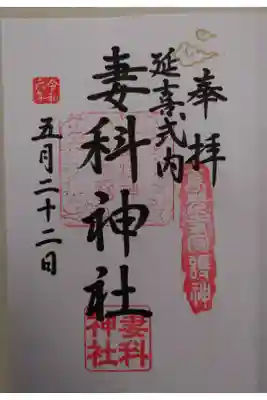 奉拝
延喜式内
妻科神社
令和
六年
五月二十二日
妻科
神社